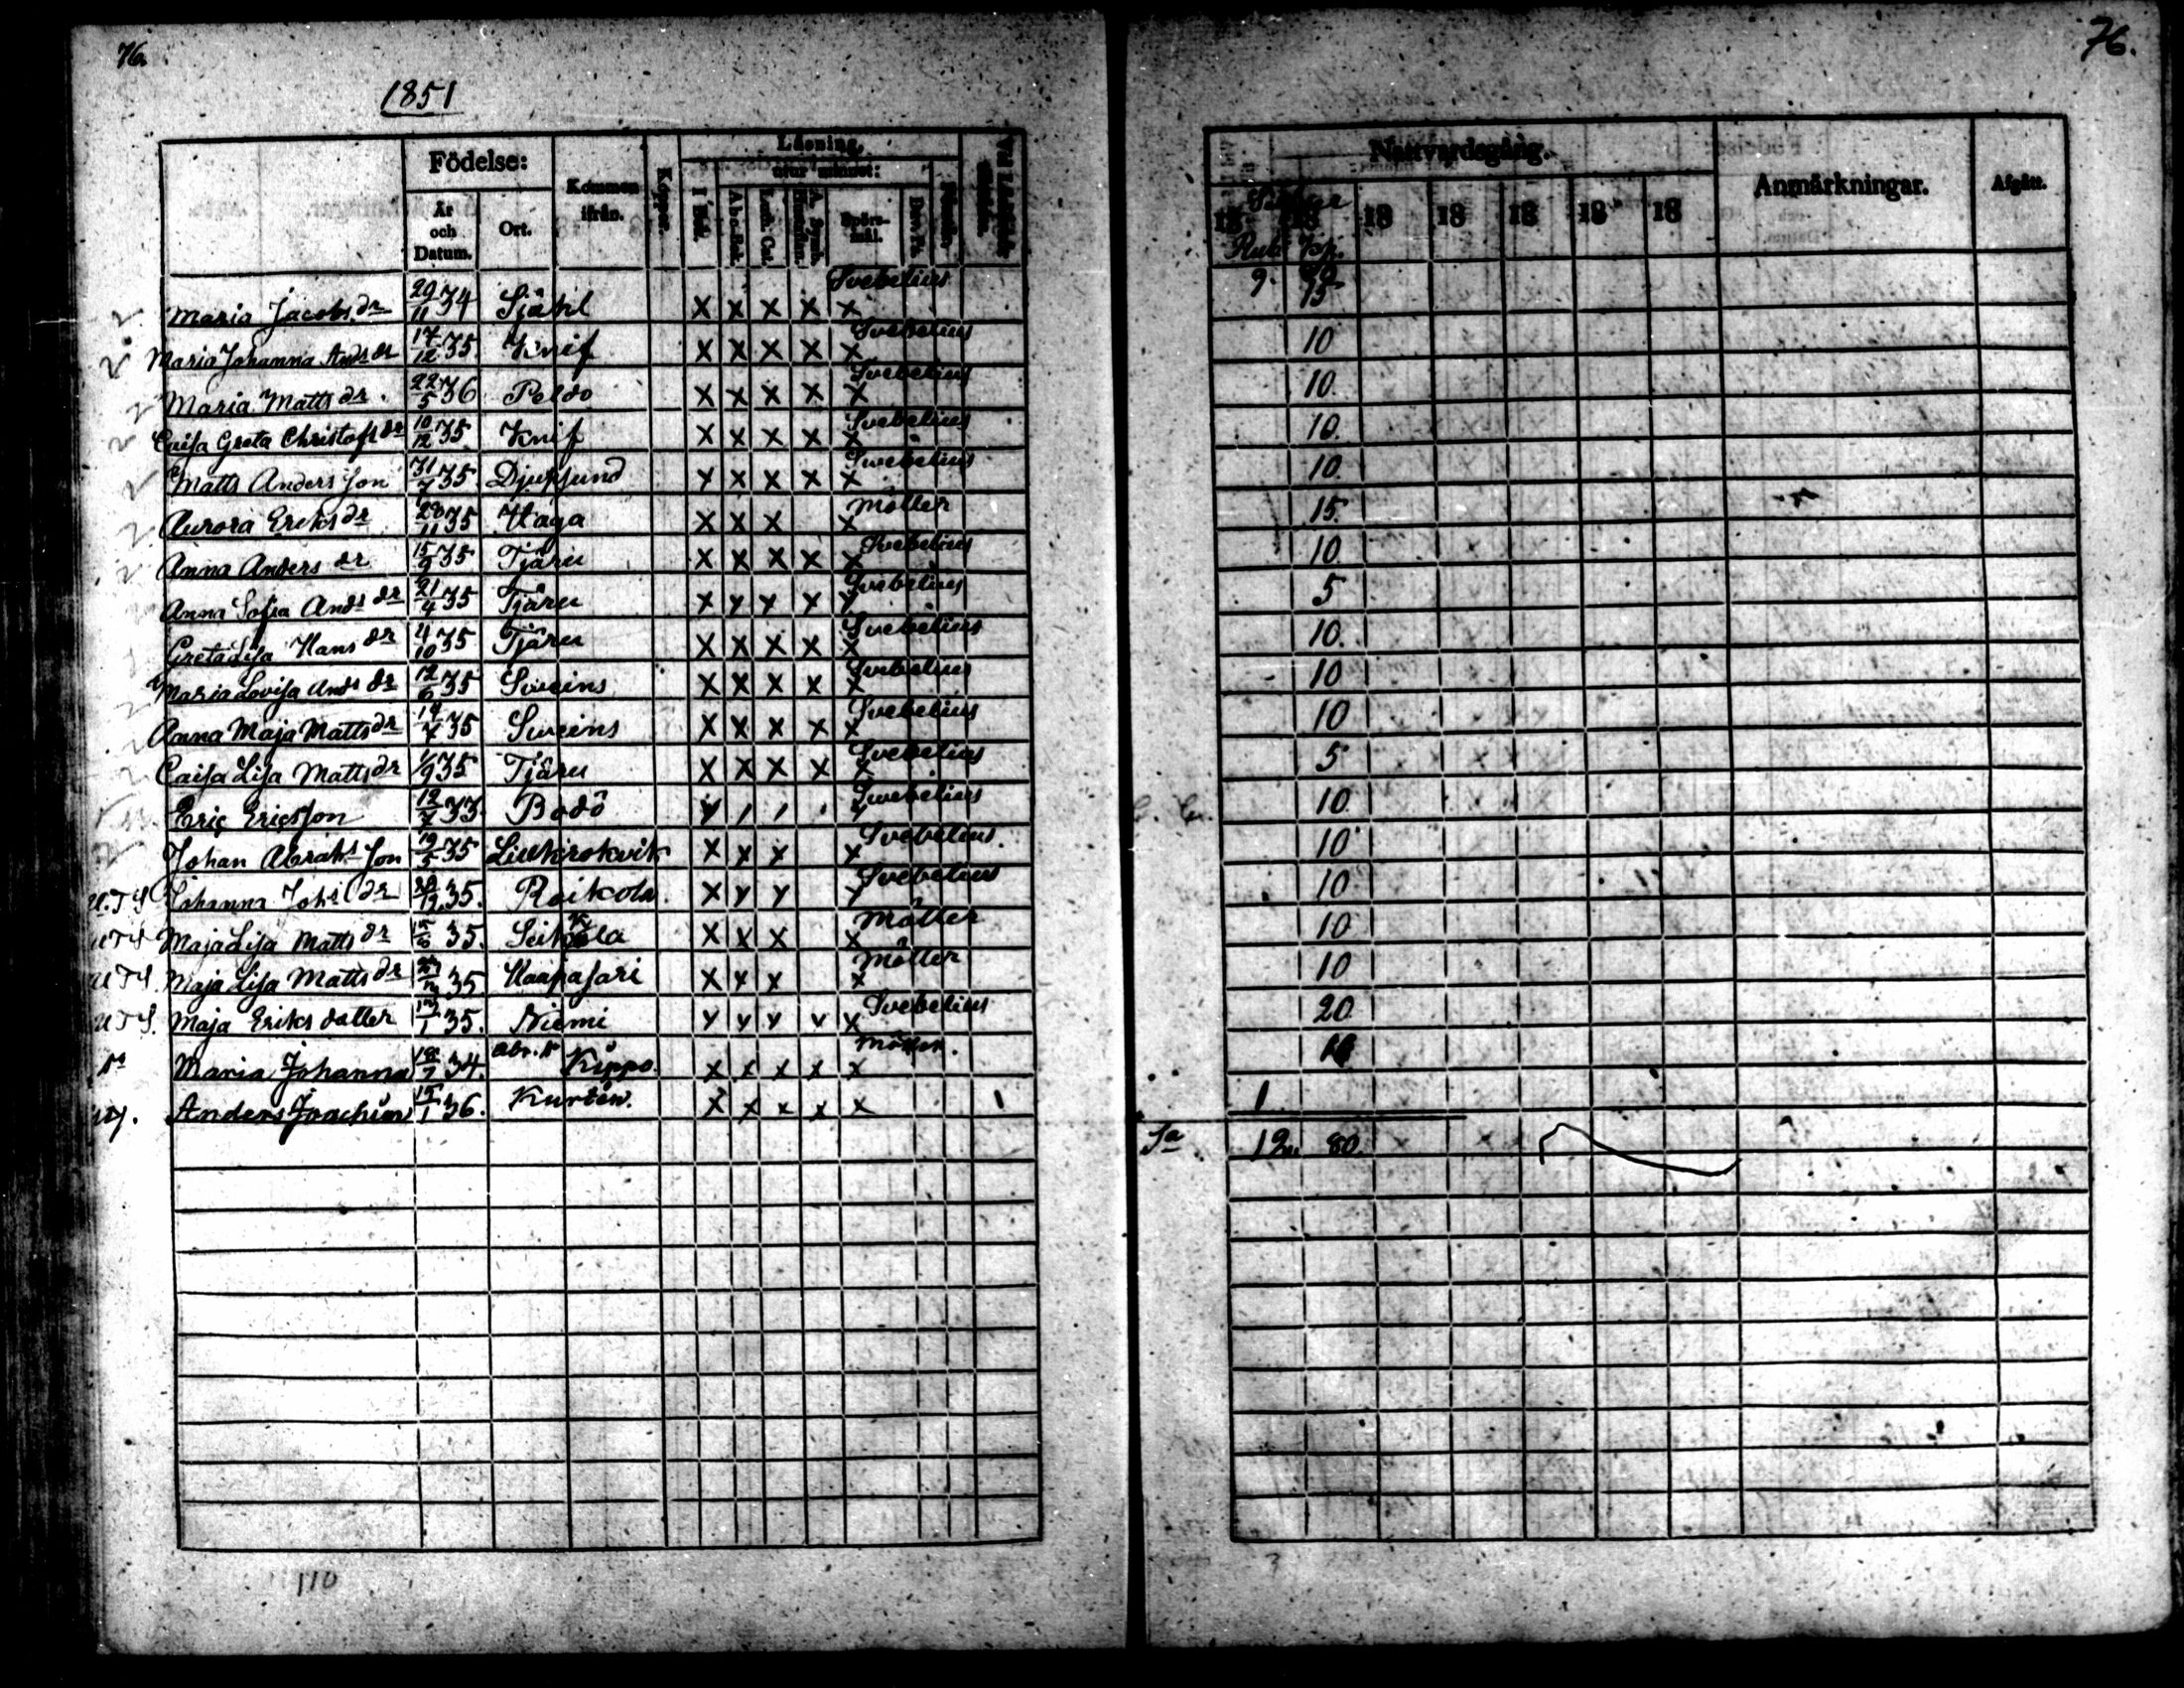 76.
76.
1851
Födelse:
År och Datum.
Ort.
Kommen ifrån.
Koppor.
Läsning.
utur minnet:
I Bok.
A-b-c-Bok.
Luth. Cat.
Spörs-mål.
Nattvardsgång.
18 18 18 18 18 18 18
Rub. Kop.
Anmärkningar.
Afgått.
Maria Jacobs dr 29/11 34 Sjähl x x x x x Svebelius 9. 15
Maria Johanna Ands dr 17/12 35 Knif x x x x x Svebelius 10
Maria Matts dr. 22/5 36 Poldo x x x x x Svebelius 10.
Caisa Greta Christofs dr 10/12 35 Knif x x x x x Svebelius 10.
Matts Andersson 31/7 35 Djupsund x x x x x Svebelius 10.
Aurora Ereks dr 28/11 35 Haga x x x x Möller 15.
Anna Anders dr 15/9 35 Tjäru x x x x x Svebelius 10.
Anna Sofia Ands dr 21/4 35 Tjäru x y y x y Svebelius 5
Greta Lisa Hans dr 4/10 35 Tjäru x x x x x Svebelius 10.
Maria Lovisa Ands dr 12/6 35 Sveins x x x x x Svebelius 10
Anna Maja Matts dr 35 Sveins x x x x x Svebelius 10
Caisa Lisa Matts dr 1/9 35 Tjäru x x x x x Svebelius 5
Eric Ericsson 12/7 33. Bodö Svebelius 10.
Johan Abrahs son 19/5 35 Lillkrokvik x x x x Svebelius. 10
U.T.S Johanna Johs dr 35. Raikola x y y y Svebelius 10
U T S Maja Lisa Matts dr 15/6 35. x x x x Möller 10
U T S. Maja Lisa Matts dr 35 Kaapasari x y x x Möller 10
U T S. Maja Eriks dotter 35. Niemi y y y v x Svebelius 20
Maria Johanna 34. Abr. dr Kippo. x x x x x Möller.
Anders Joachim 15/1 36. Kurtén. x x x x x 1 1
Sa 12 80.
110